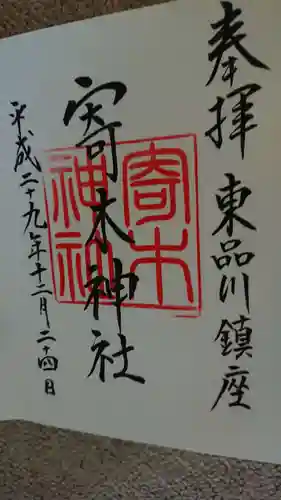 奉拝
東品川鎮座
寄木神社
寄木神社
平成二十九年十二月二十四日